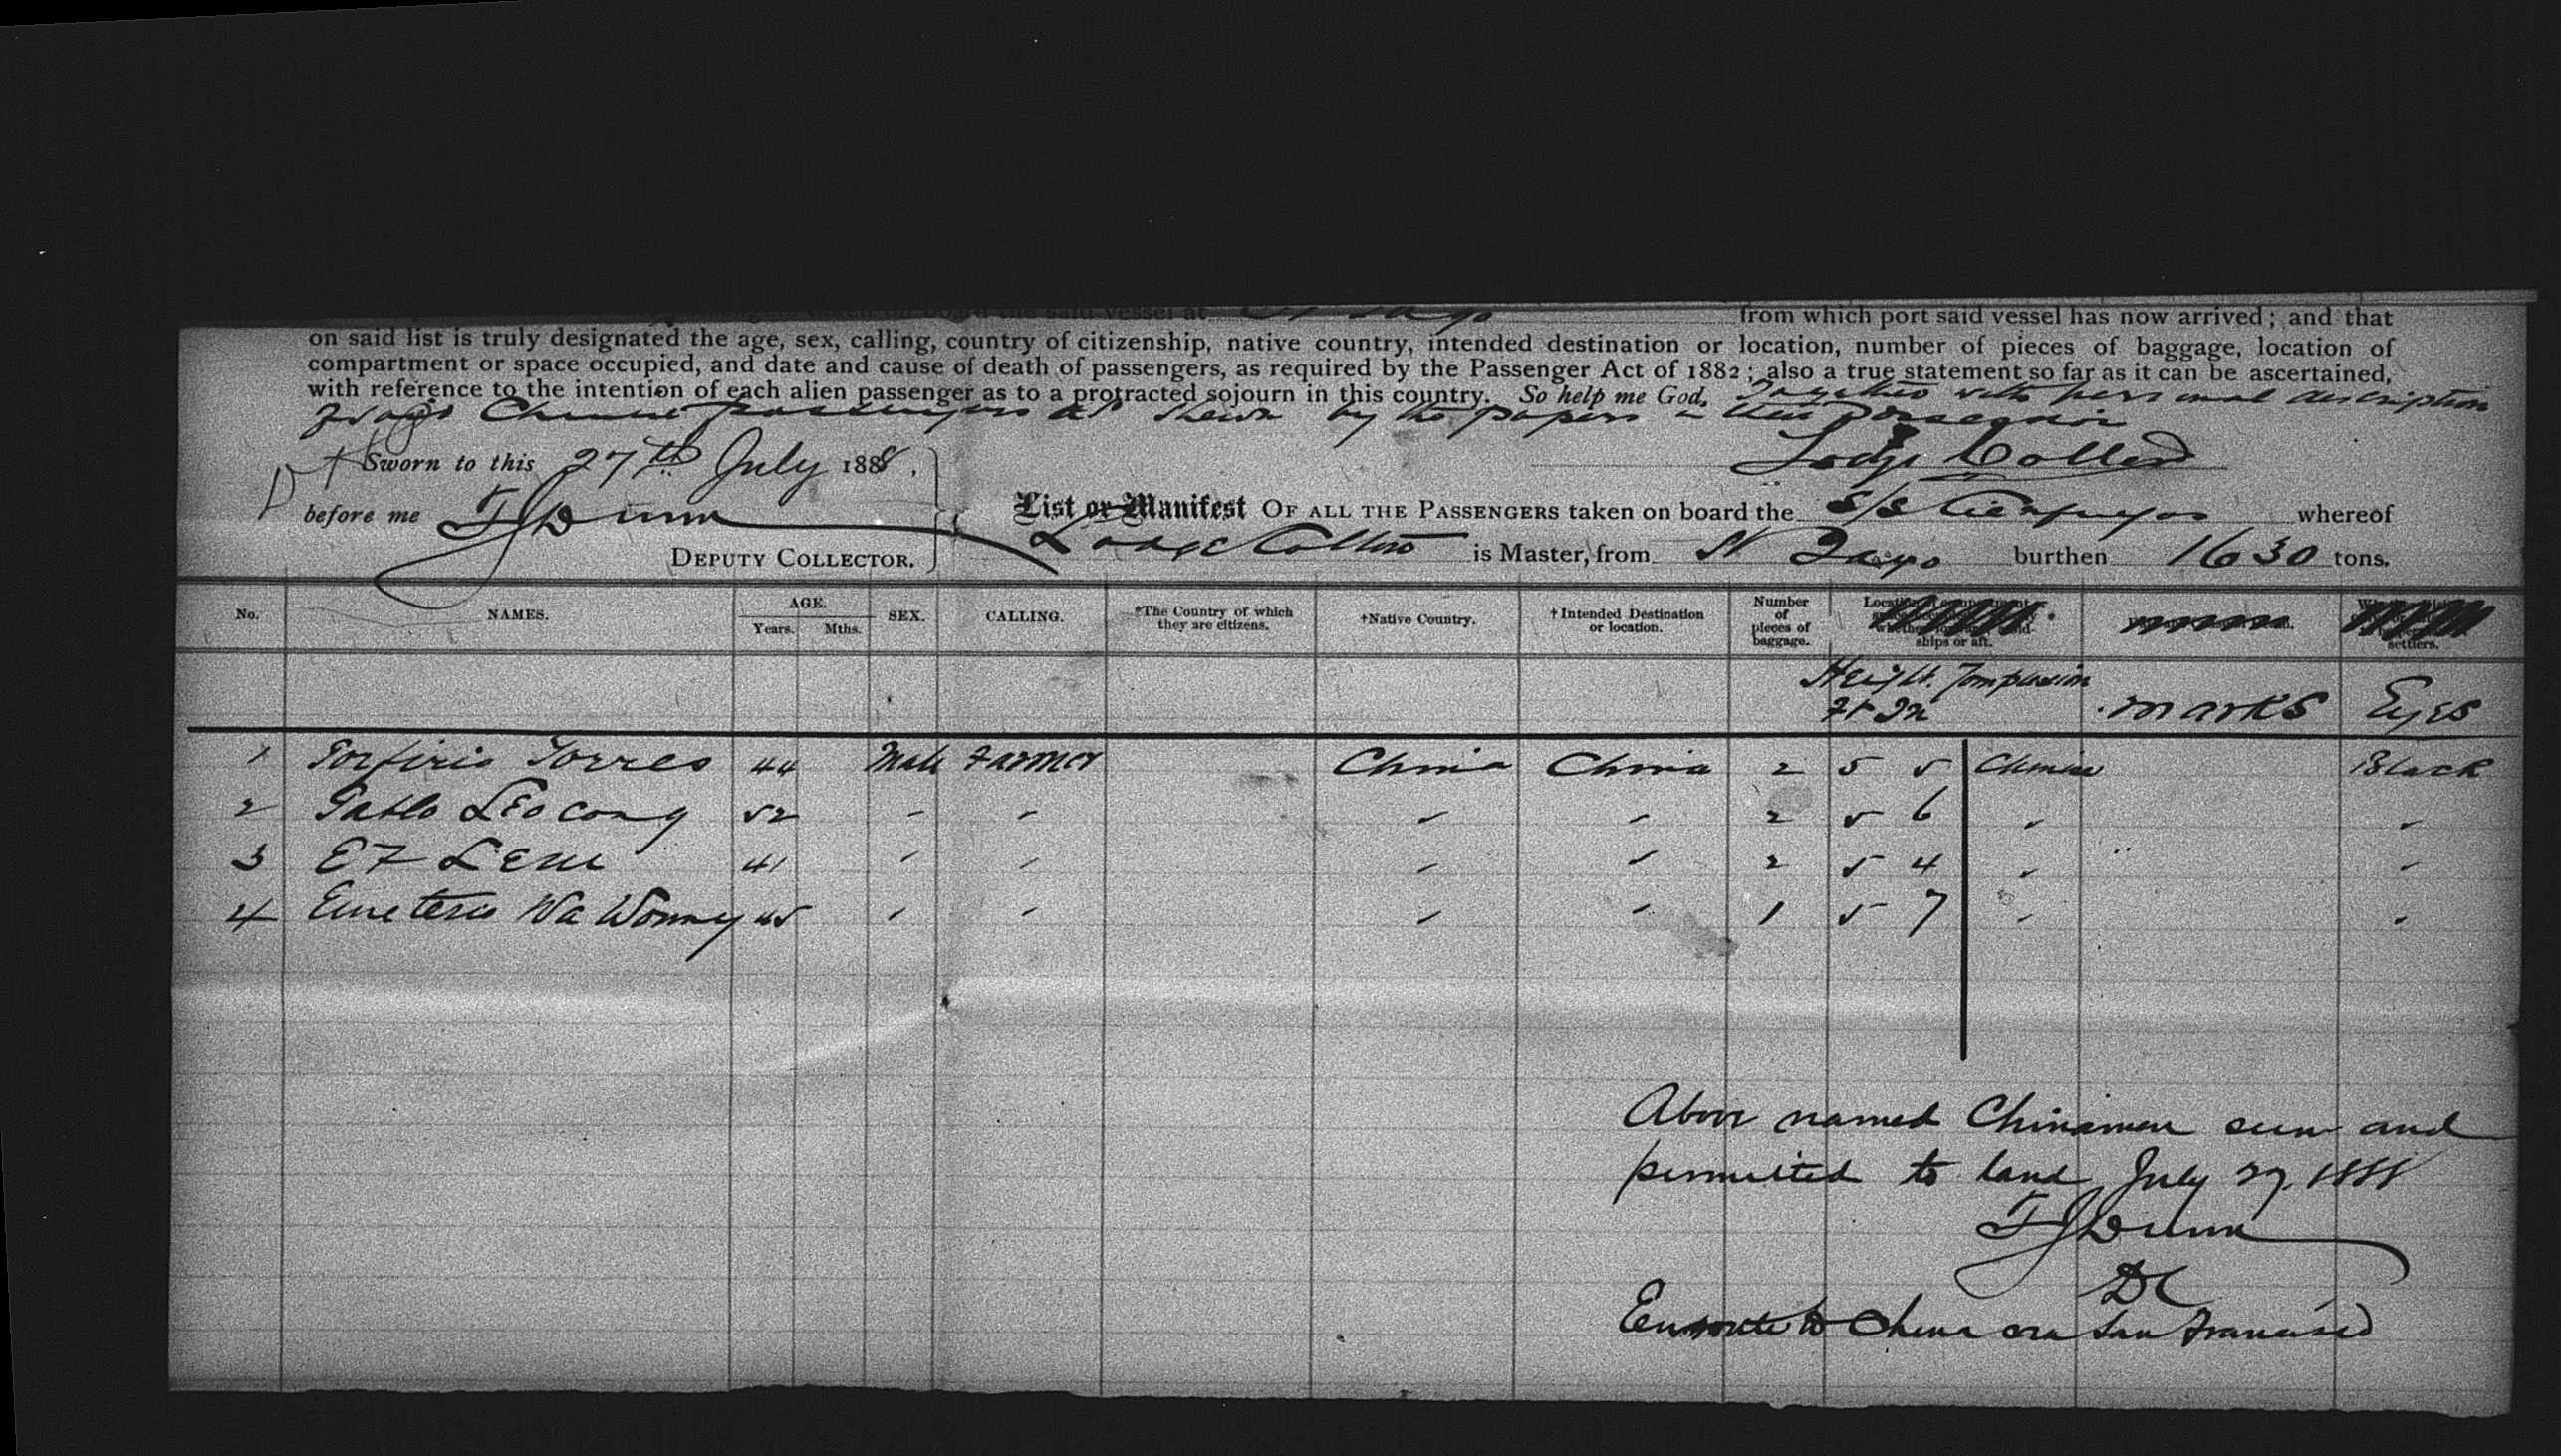 said vessel at St Jago from which port said vessel has now arrived; and that
on said list is truly designated the age, sex, calling, country of citizenship, native country, intended destination or location, number of pieces of baggage, location of
compartment or space occupied, and date and cause of death of passengers, as required by the Passenger Act of 1882; also a true statement so far as it can be ascertained,
with reference to the intention of each alien passenger as to a protracted sojourn in this country. So help me God, Together with personal description
Chinese passengers as shewn by the papers in their possession
Sworn to this 27th July 1888.
before me F J Dunn
DEPUTY COLLECTOR.
List or Manifest OF ALL THE PASSENGERS taken on board the S/S Cienfuegos whereof
is Master, from St Jago burthen 1630 tons.
No. NAMES. AGE. Years. Mths. SEX. CALLING. *The Country of which they are citizens. †Native Country. †Intended Destination or location. Number of pieces of baggage. ships or aft. settlers.
Height. Complexion
Ft In marks Eyes
1 Porfirio Torres 44 Male Farmer China China 2 5 5 Chinese Black
2 Pablo Leocong 52 " " " " 2 5 6 " "
3 41 " " " " 2 5 4 " "
4 Emeterio Wa Wonny 45 " " " " 1 5 7 " "
Above named Chinamen seen and
permitted to land July 27. 1888
F J Dunn
DC
Enroute to China via San Francisco